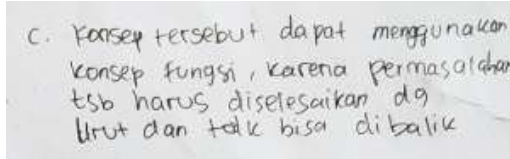 C. Konsep tersebut dapat menggunakan
konsep fungsi, karena permasalahan
tsb harus diselesaikan dg
Urut dan tdk bisa dibalik